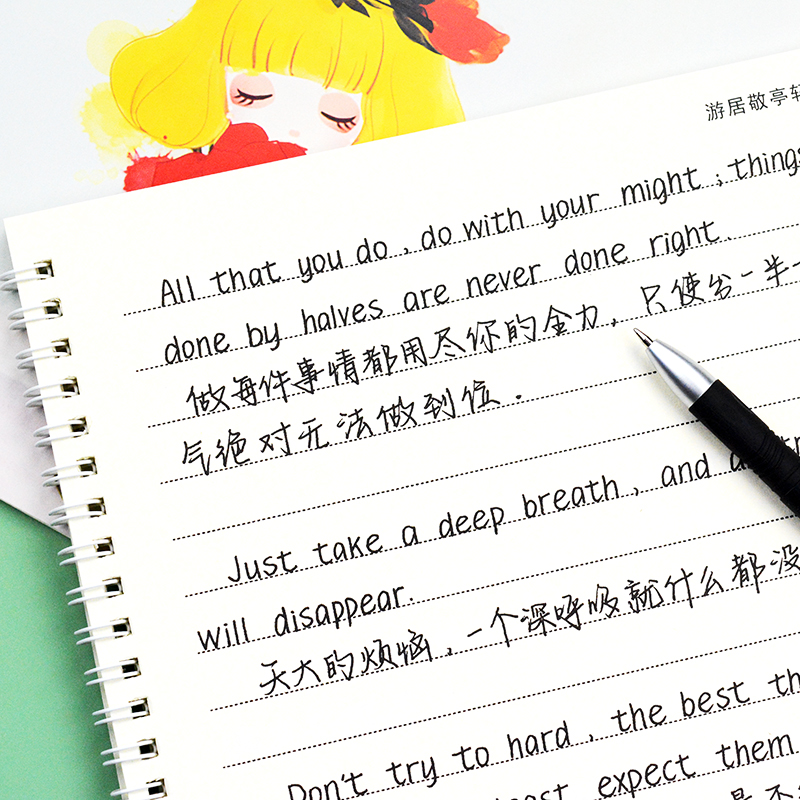 游居敬亭
All that you do , do with your might ; things
done by halves are never done right.
做每件事情都用尽你的全力，只使出一半
气绝对无法做到位.
Just take a deep breath , and
will disappear.
天大的烦恼，一个深呼吸就什么都没
Don't try to hard , the best
expect them